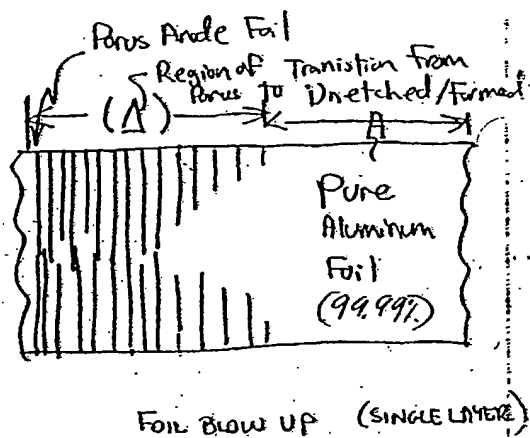 Porus Anode Foil
Region of Transistion from
Porus to Unetched/Formed
(Δ)
A
Pure
Aluminum
Foil
(99.99%)
FOIL BLOW UP (SINGLE LAYER)